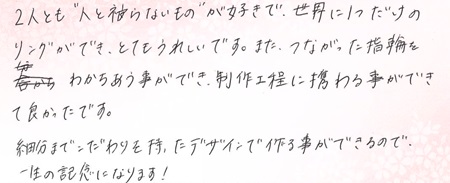 2人とも"人と被らないもの"が好きで、世界に1つだけの
リングができ、とてもうれしいです。また、つながった指輪を
わかちあう事ができ、制作工程に携わる事ができ
て良かったです。
細部までこだわりを持ったデザインで作る事ができるので、
一生の記念になります!